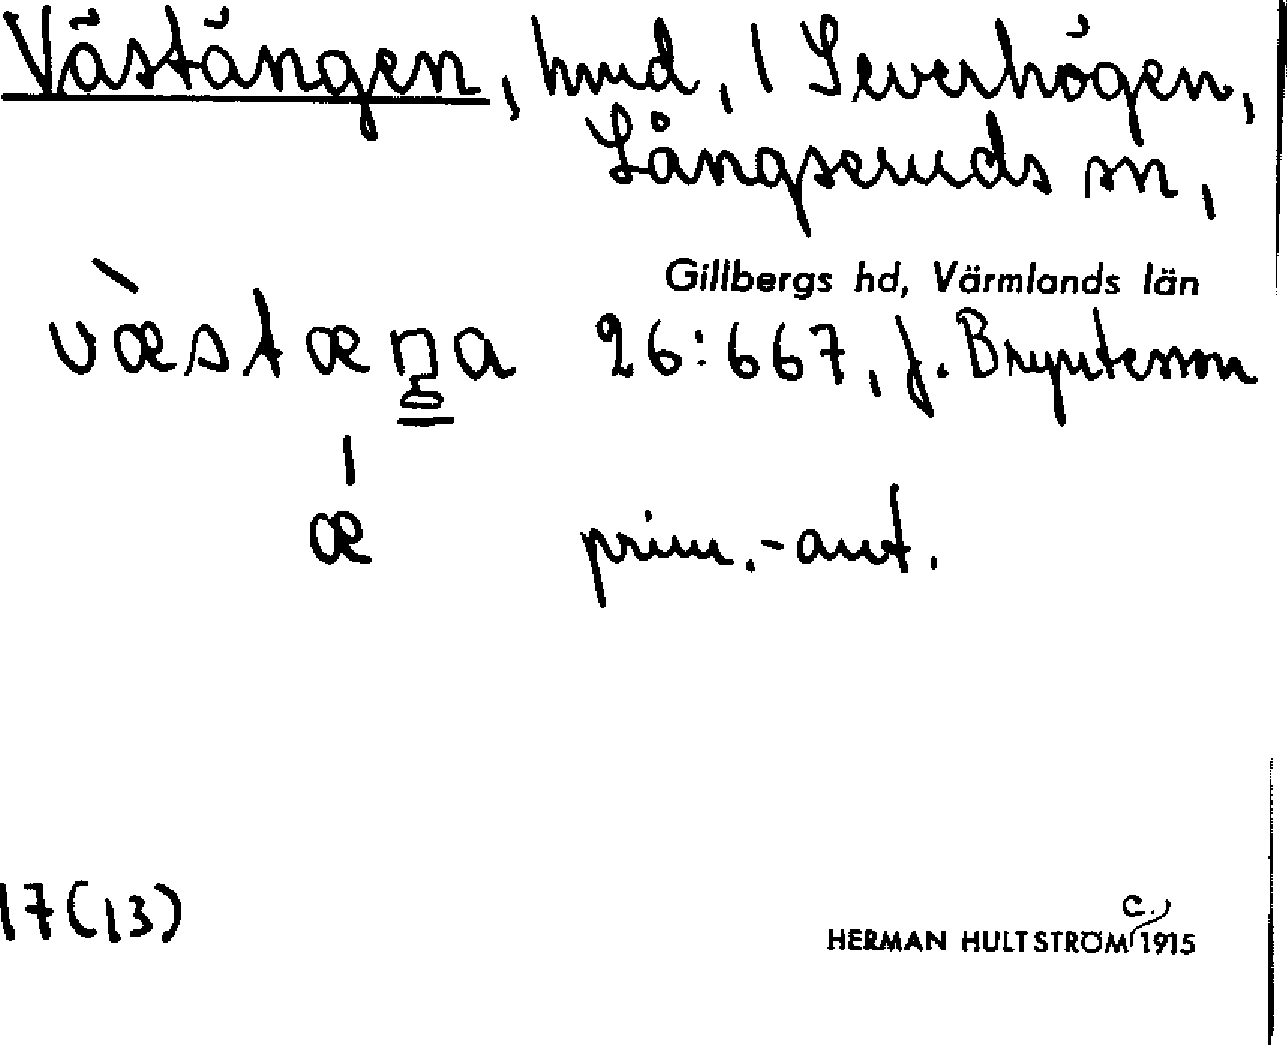 Västängen, hmd, i Severhögen,
Långseruds sn,
Gillbergs hd, Värmlands län
væstæŋa 26:667, J. Bryntesson
æ prim.-ant.
17(13)
c.
HERMAN HULTSTRÖM 1915